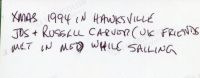 XMAS 1994 IN HAWKSVILLE
JDS + RUSSELL CARVER (UK FRIENDS
MET IN MED WHILE SAILING